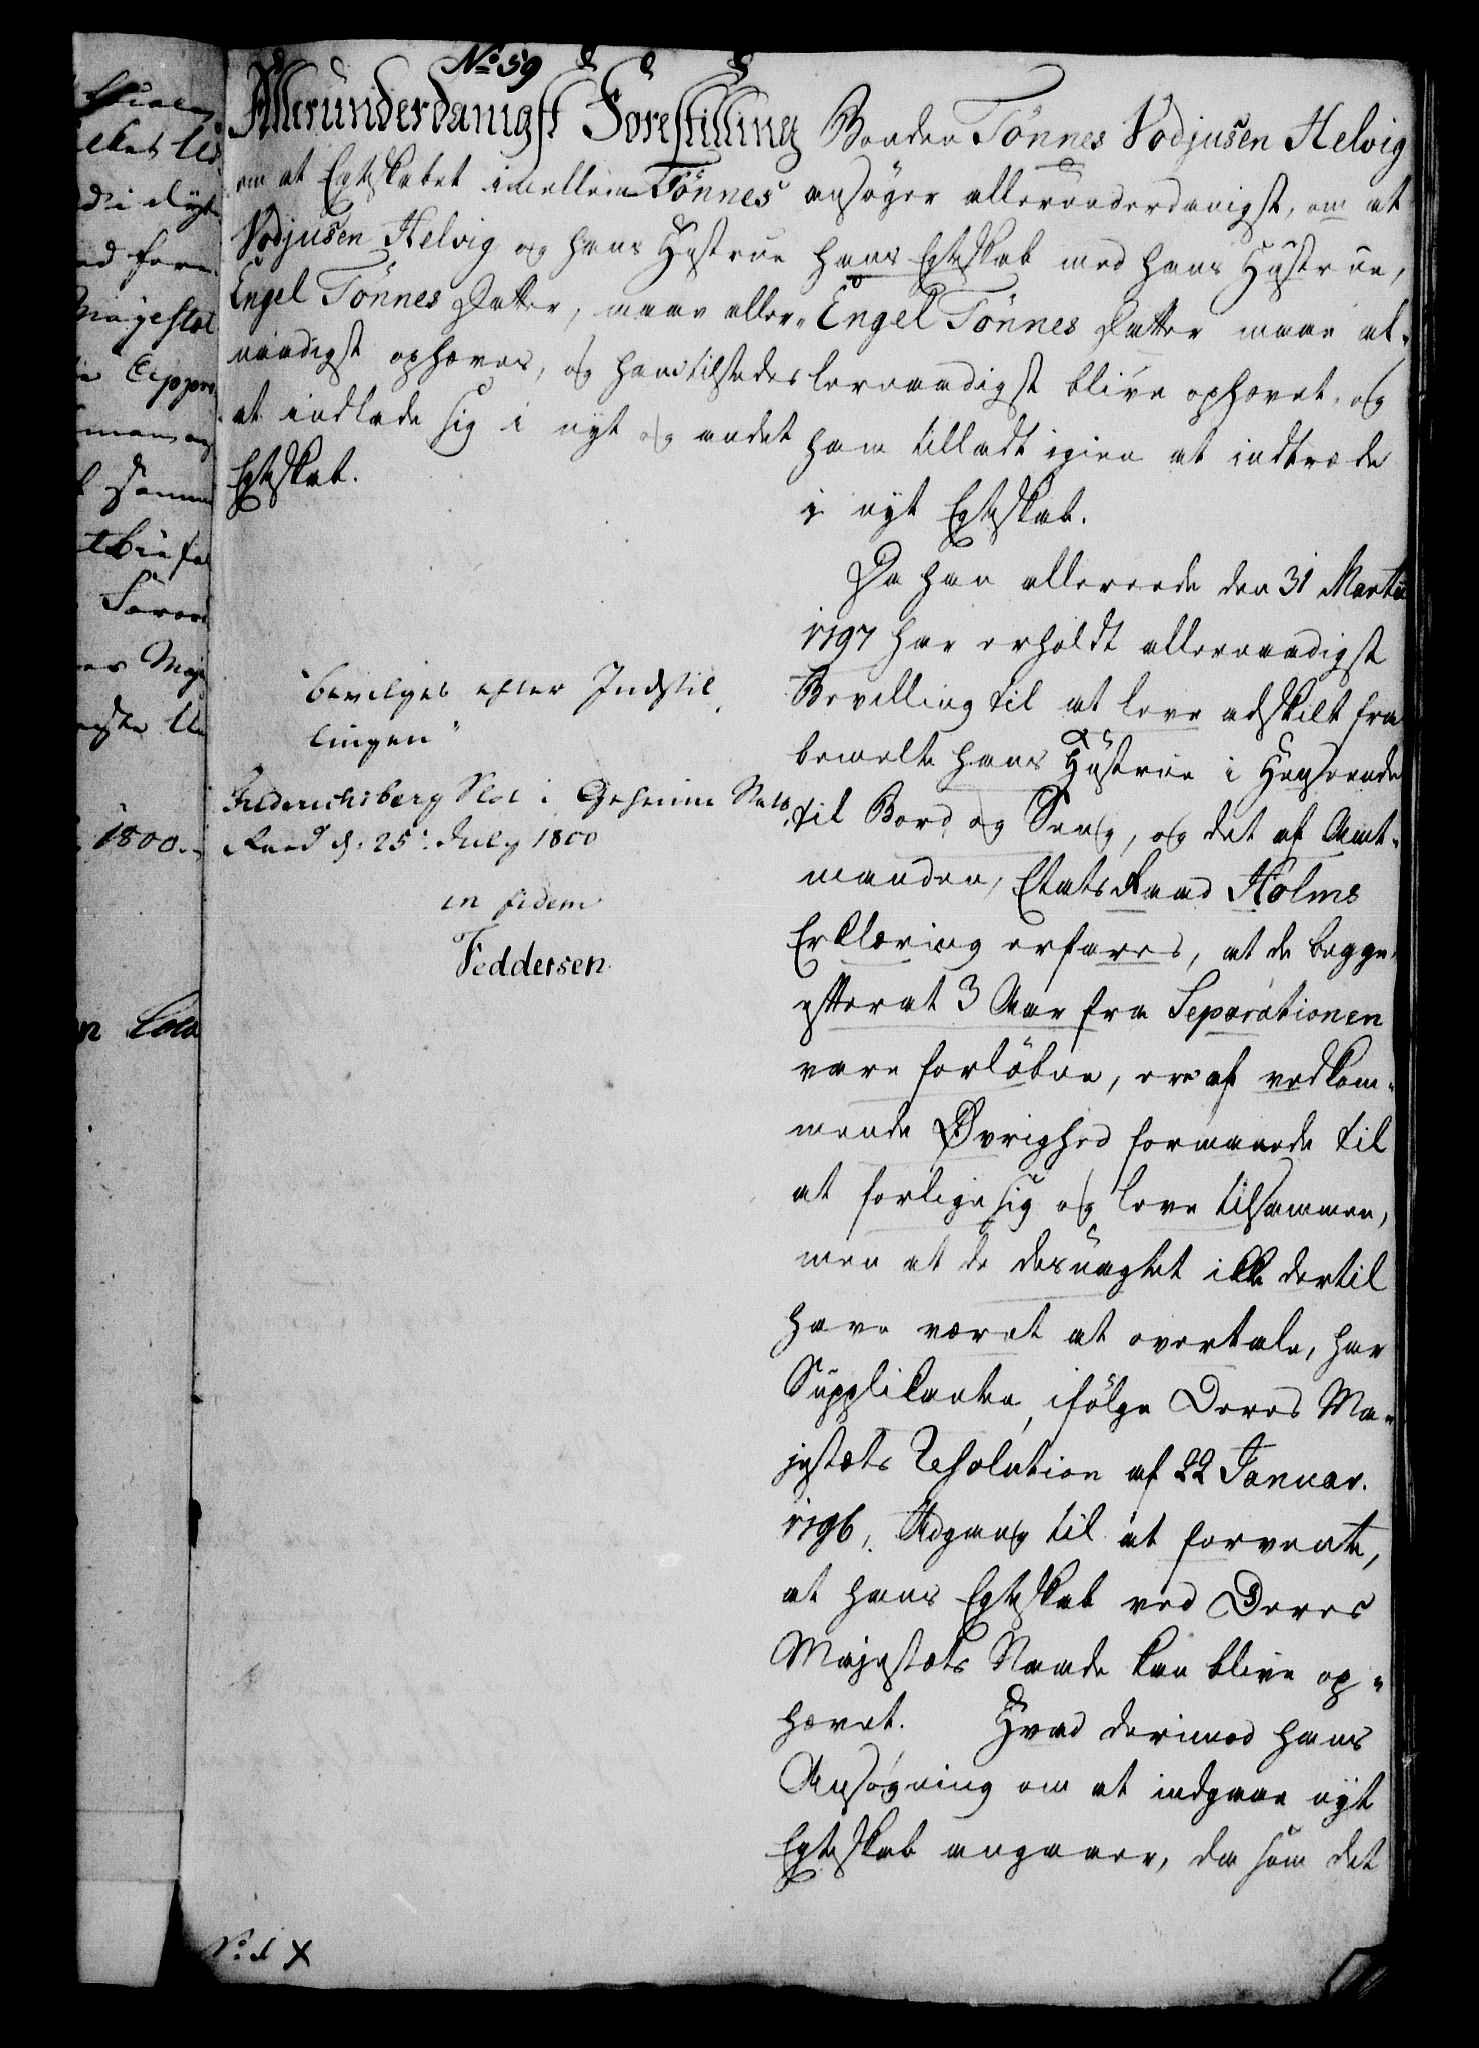 No 59
Allerunderdanigst Forestilling
om at Egteskabet imellem Tönnes
Vodjusen Helvig og hans Hustrue
Engel Tönnes Datter, maae aller-
naadigst ophæves, og ham tilstædes
at indlade sig i nyt og andet
Egteskab.
"bevilges efter Indstil
lingen"
Friderichsberg Slot i Geheime Stats
Raad d: 25: July 1800
in fidem
Feddersen.
Bonden Tönnes Vodjusen Helvig
ansöger allerunderdanigst, om at
hans Egteskab med hans Hustrue,
Engel Tönnes Datter maae al-
lernaadigst blive ophævet, og
ham tilladt igien at indtræde
i nyt Egteskab.
Da han allereede den 31 Martii
1797 har erholdt allernaadigst
Bevilling til at leve adskilt fra
bemelte hans Hustrue i Henseende
til Bord og Seng, og det af Amt-
manden, Etatsraad Holms
Erklæring erfares, at de begge,
efterat 3 Aar fra Separationen
vare forløbne, ere af vedkom-
mende Øvrighed formanede til
at forlige sig og leve tilsammen,
men at de desuagtet ikke dertil
have været at overtale, har
Supplikanten, ifölge Deres Ma-
jestæts Resolution af 22 Januar.
1796, Adgang til at forvente,
at hans Egteskab ved Deres
Majestæts Naade kan blive op-
hævet. Hvad derimod hans
Ansøgning om at indgaae nyt
Egteskab angaaer, da som det
1800